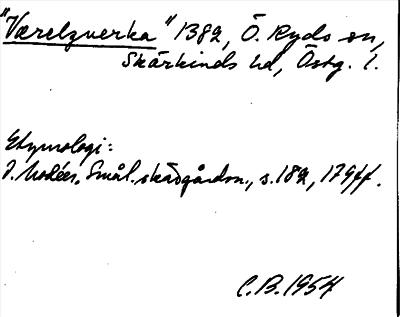 "Værelzverka" 1382, Ö. Ryds sn,
Skärkinds hd, Östg. l.
Etymologi:
I. Modéer. Smål. skärgårdsn., s. 182, 179 ff.
C.B. 1954